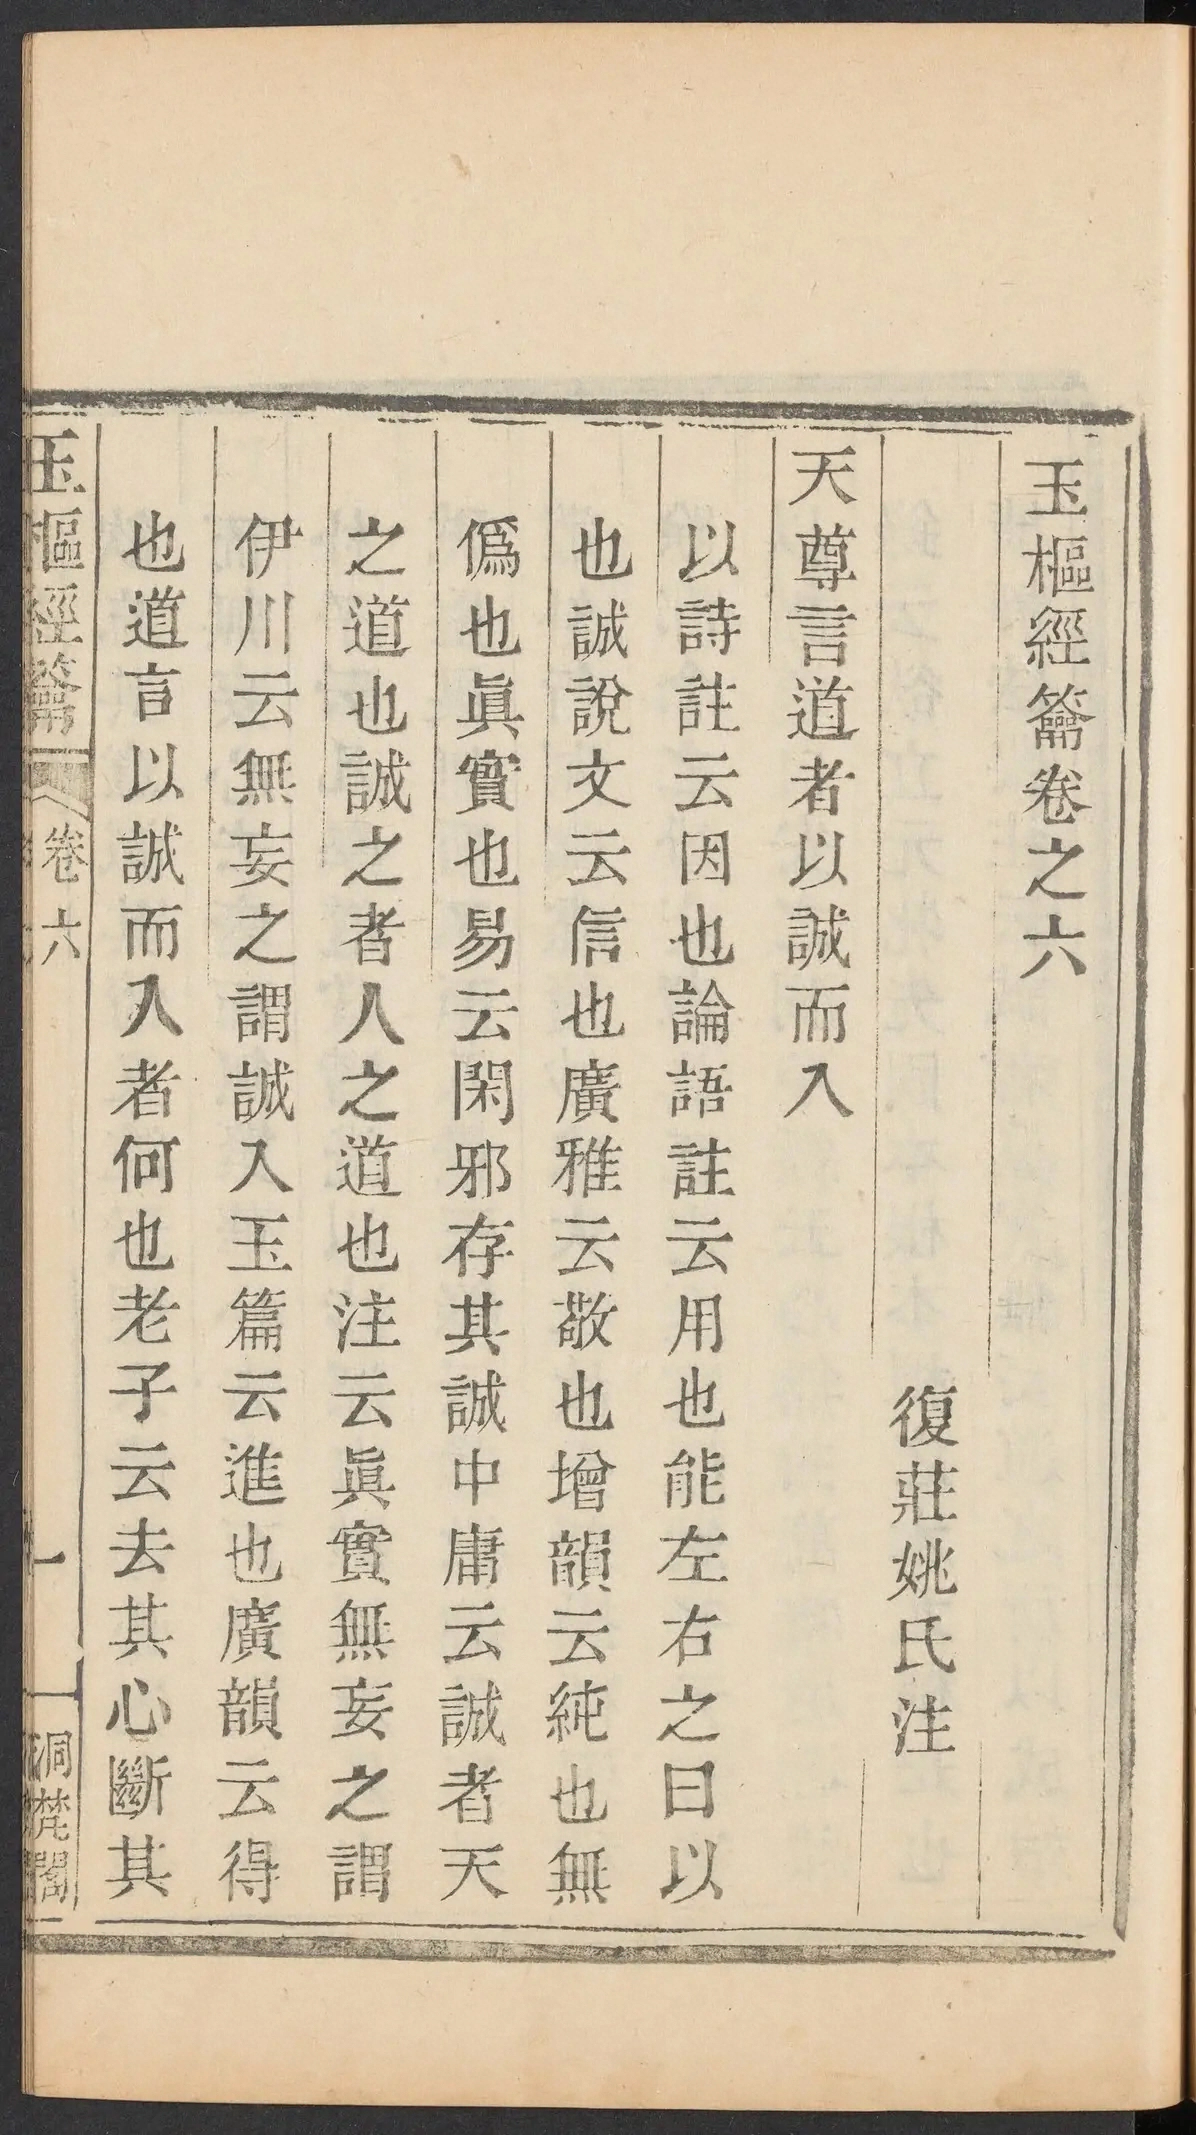 玉樞經籥卷之六
復莊姚氏注
天尊言道者以誠而入
以詩註云因也論語註云用也能左右之曰以
也誠說文云信也廣雅云敬也增韻云純也無
僞也眞實也易云閑邪存其誠中庸云誠者天
之道也誠之者人之道也注云眞實無妄之謂
伊川云無妄之謂誠入玉篇云進也廣韻云得
也道言以誠而入者何也老子云去其心斷其
玉樞經籥
卷六
一
洞梵閣